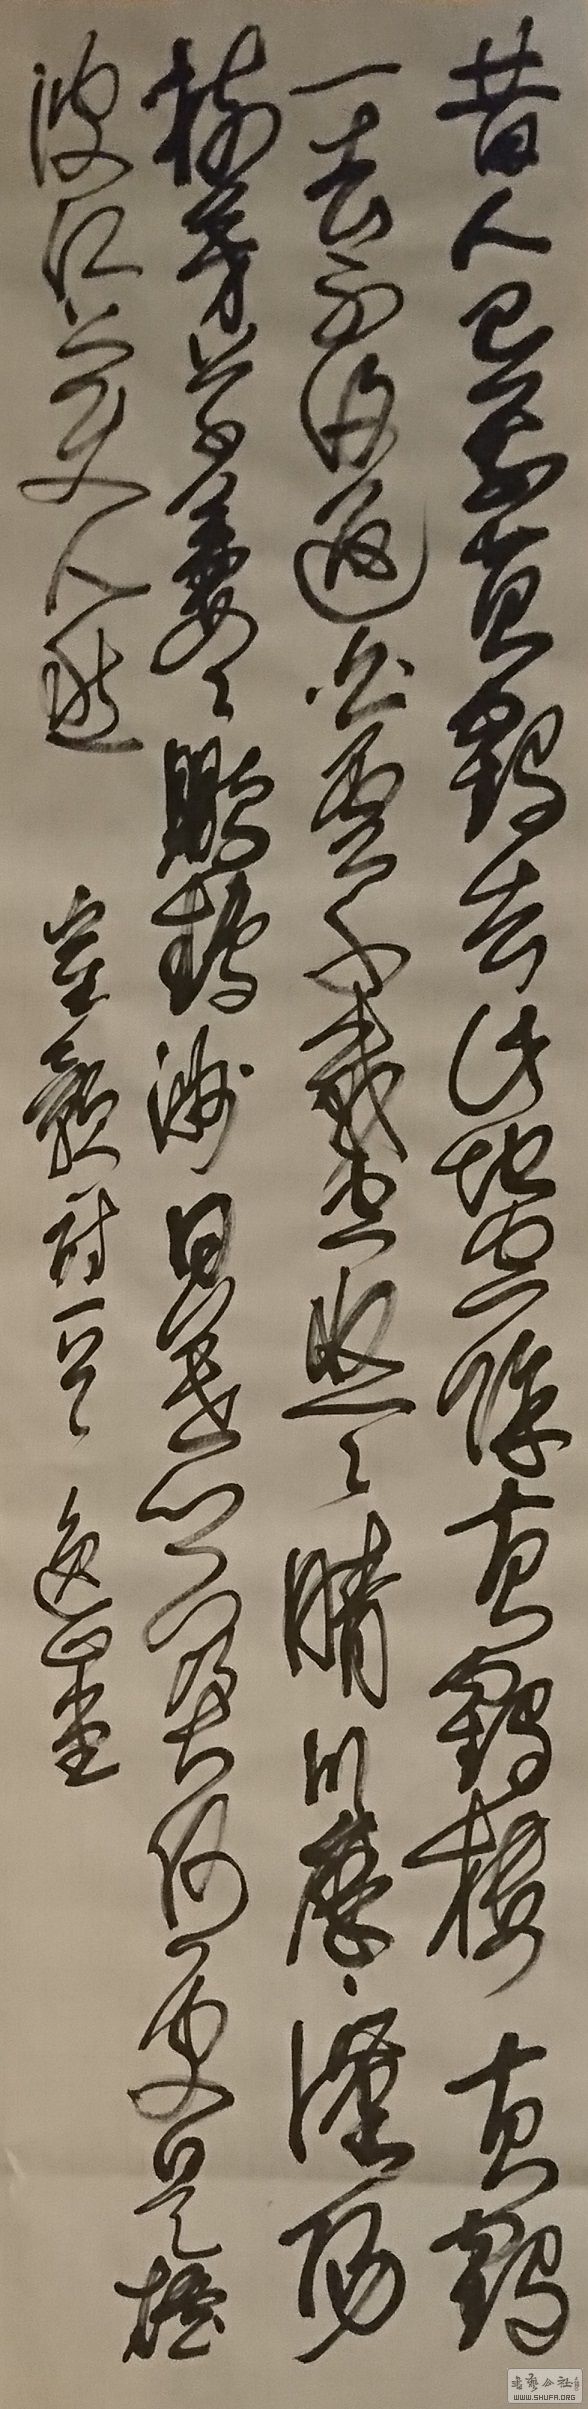 昔人已乘黄鶴去此地空餘黄鶴樓黄鶴
一去不復返白雲千載空悠々晴川歷々漢陽
樹芳草萋々鸚鵡洲日暮鄉關何處是煙
波江上使人愁 崔顥詩一首
書藝公社
WWW.SHUFA.ORG